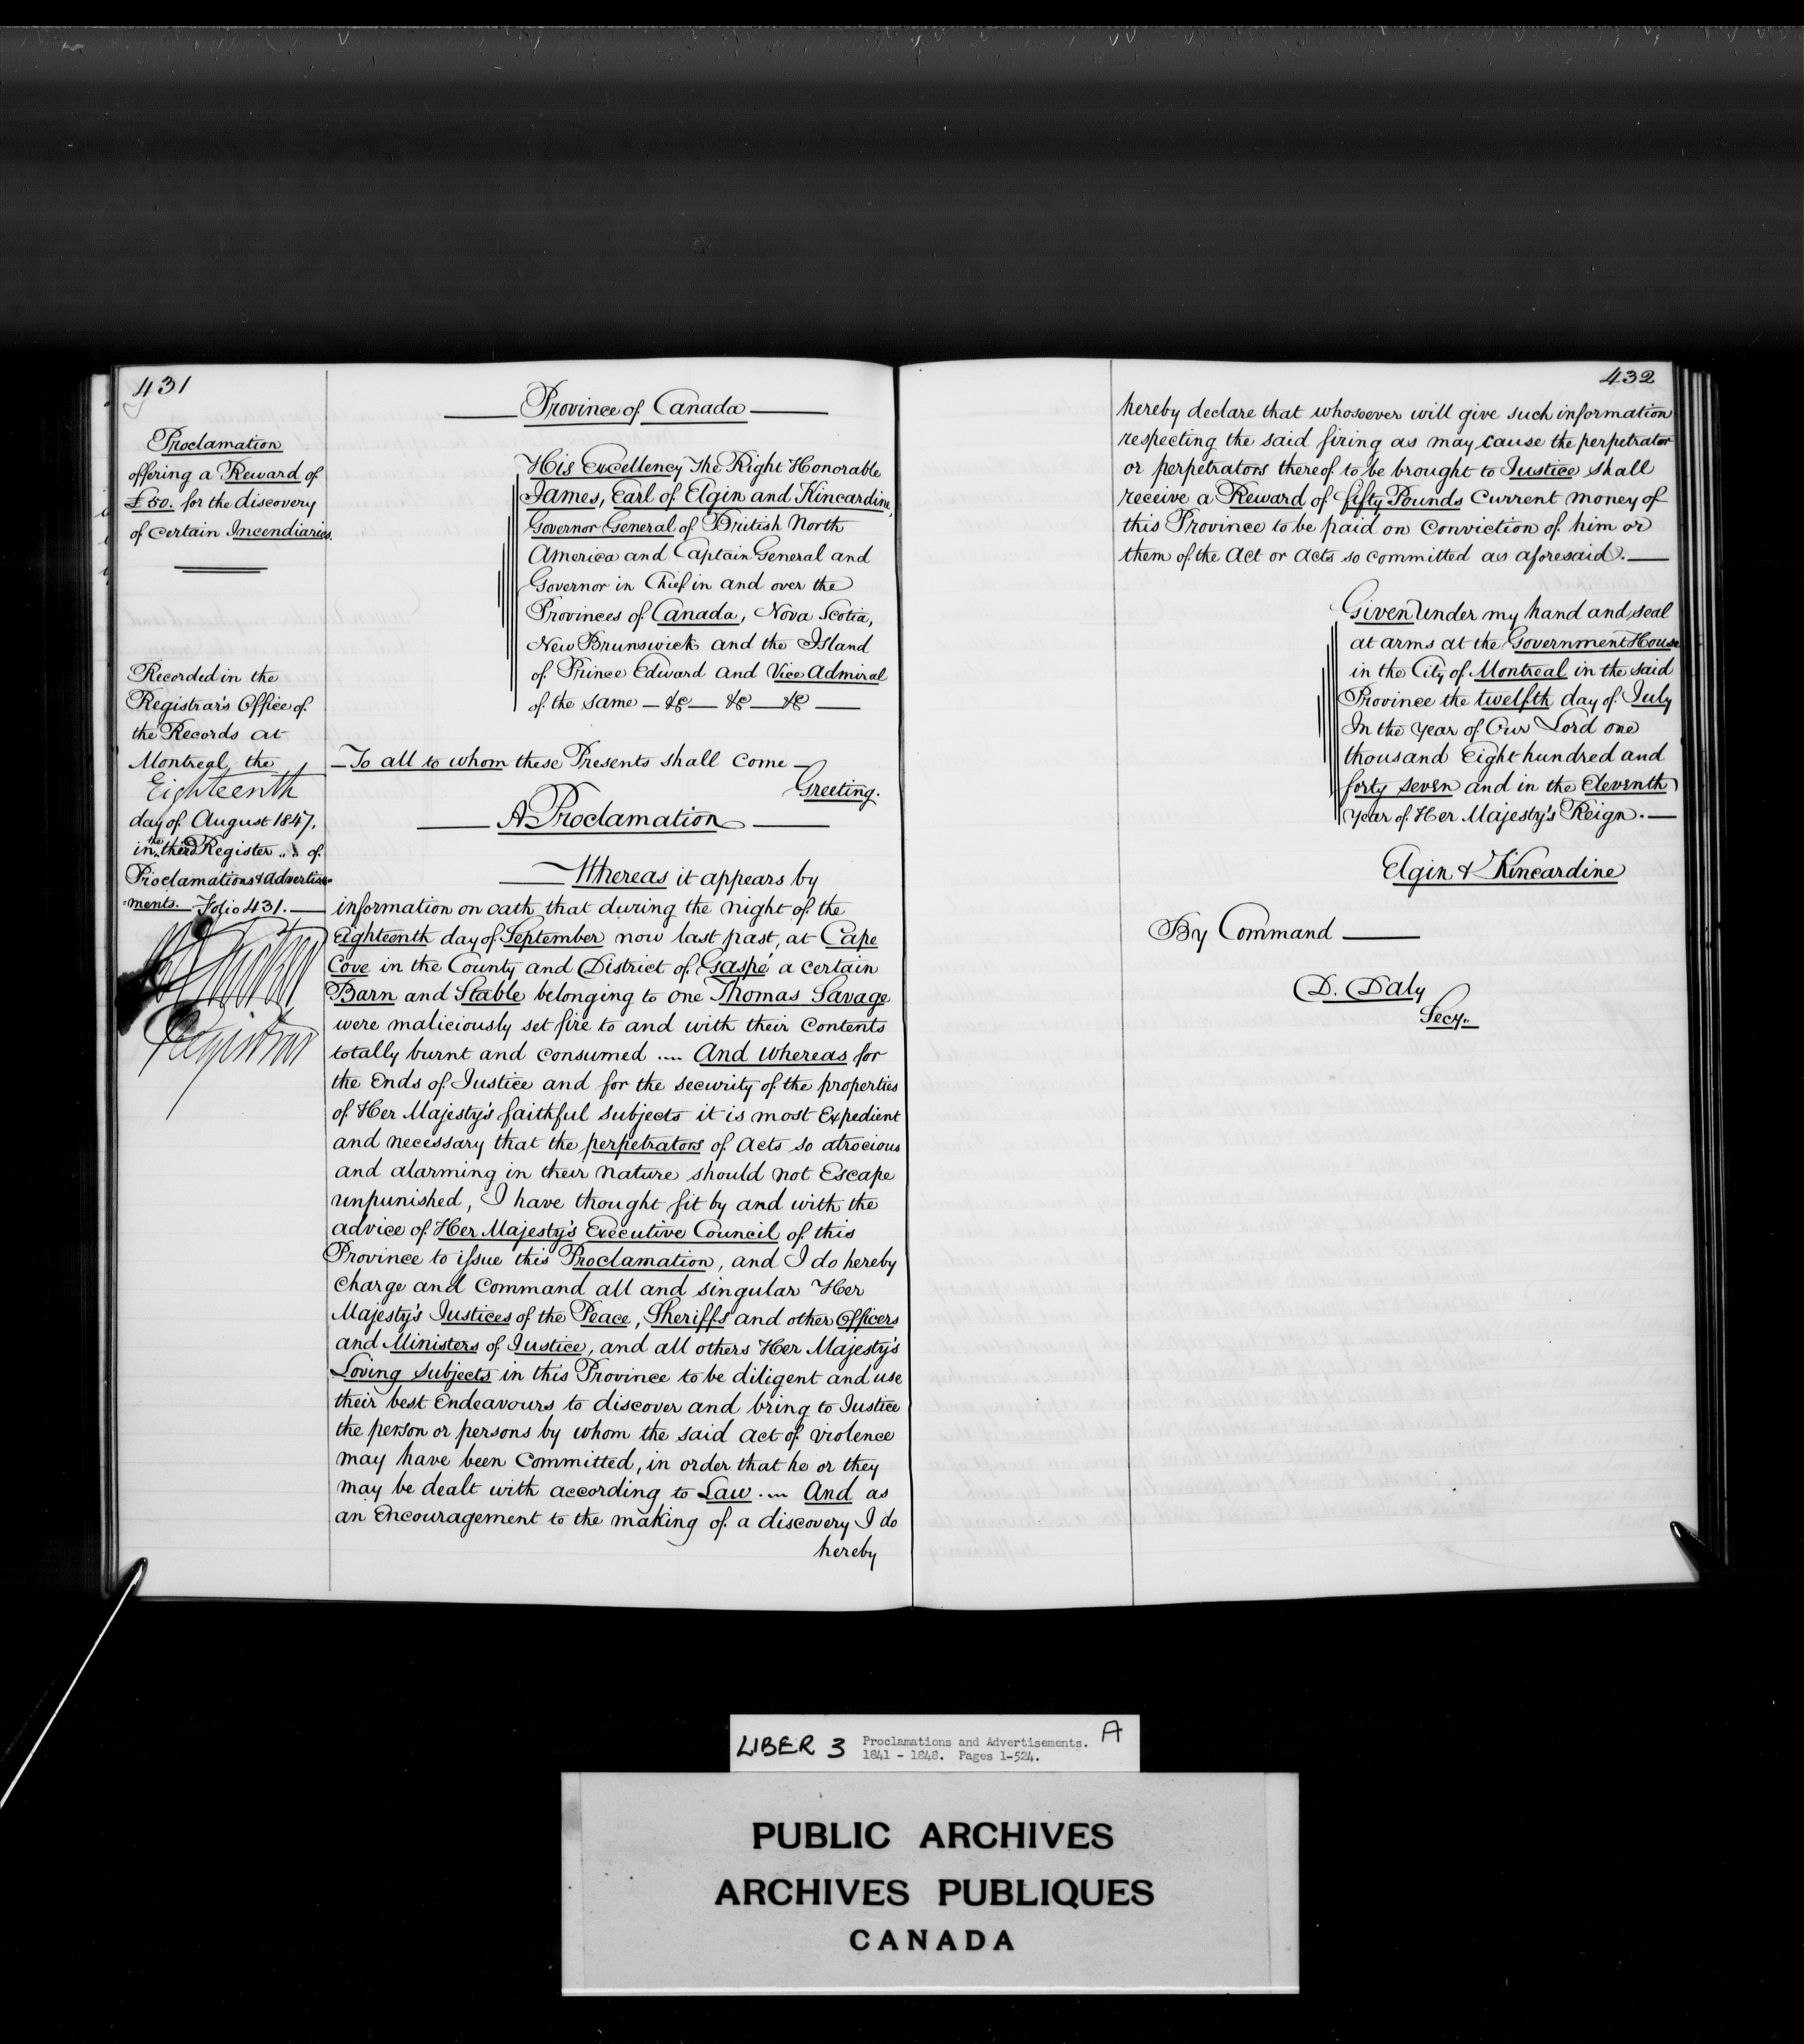 431
Proclamation
offering a Reward of
£50. for the discovery
of certain Incendiaries.
Recorded in the
Registrar's Office of
the Records at
Montreal, the
Eighteenth
day of August 1847.
in the third Register of
Proclamations & Advertise-
-ments. Folio 431.
Registrar
Province of Canada
His Excellency The Right Honorable
James, Earl of Elgin and Kincardine,
Governor General of British North
America and Captain General and
Governor in Chief in and over the
Provinces of Canada, Nova Scotia,
New Brunswick and the Island
of Prince Edward and Vice Admiral
of the same — &c — &c — &c —
To all to whom these Presents shall come —
Greeting.
A Proclamation
Whereas it appears by
information on oath that during the night of the
Eighteenth day of September now last past, at Cape
Cove in the County and District of Gaspé a certain
Barn and Stable belonging to one Thomas Savage
were maliciously set fire to and with their Contents
totally burnt and consumed .... And Whereas for
the Ends of Justice and for the security of the properties
of Her Majesty's faithful subjects it is most Expedient
and necessary that the perpetrators of acts so atrocious
and alarming in their nature should not Escape
unpunished, I have thought fit by and with the
advice of Her Majesty's Executive Council of this
Province to issue this Proclamation, and I do hereby
Charge and Command all and singular Her
Majesty's Justices of the Peace, Sheriffs and other Officers
and Ministers of Justice, and all others Her Majesty's
Loving subjects in this Province to be diligent and use
their best Endeavours to discover and bring to Justice
the person or persons by whom the said act of violence
may have been Committed, in order that he or they
may be dealt with according to Law .... And as
an Encouragement to the making of a discovery I do
hereby
432
hereby declare that whosoever will give such information
respecting the said firing as may cause the perpetrator
or perpetrators thereof to be brought to Justice shall
receive a Reward of fifty Pounds Current money of
this Province to be paid on Conviction of him or
them of the Act or Acts so committed as aforesaid. —
Given under my hand and seal
at arms at the Government House
in the City of Montreal in the said
Province the twelfth day of July
In the year of Our Lord one
thousand Eight hundred and
forty seven and in the Eleventh
Year of Her Majesty's Reign. —
Elgin & Kincardine
By Command —
D. Daly
Secy.
LIBER 3 Proclamations and Advertisements. A
1841 - 1848. Pages 1-524.
PUBLIC ARCHIVES
ARCHIVES PUBLIQUES
CANADA